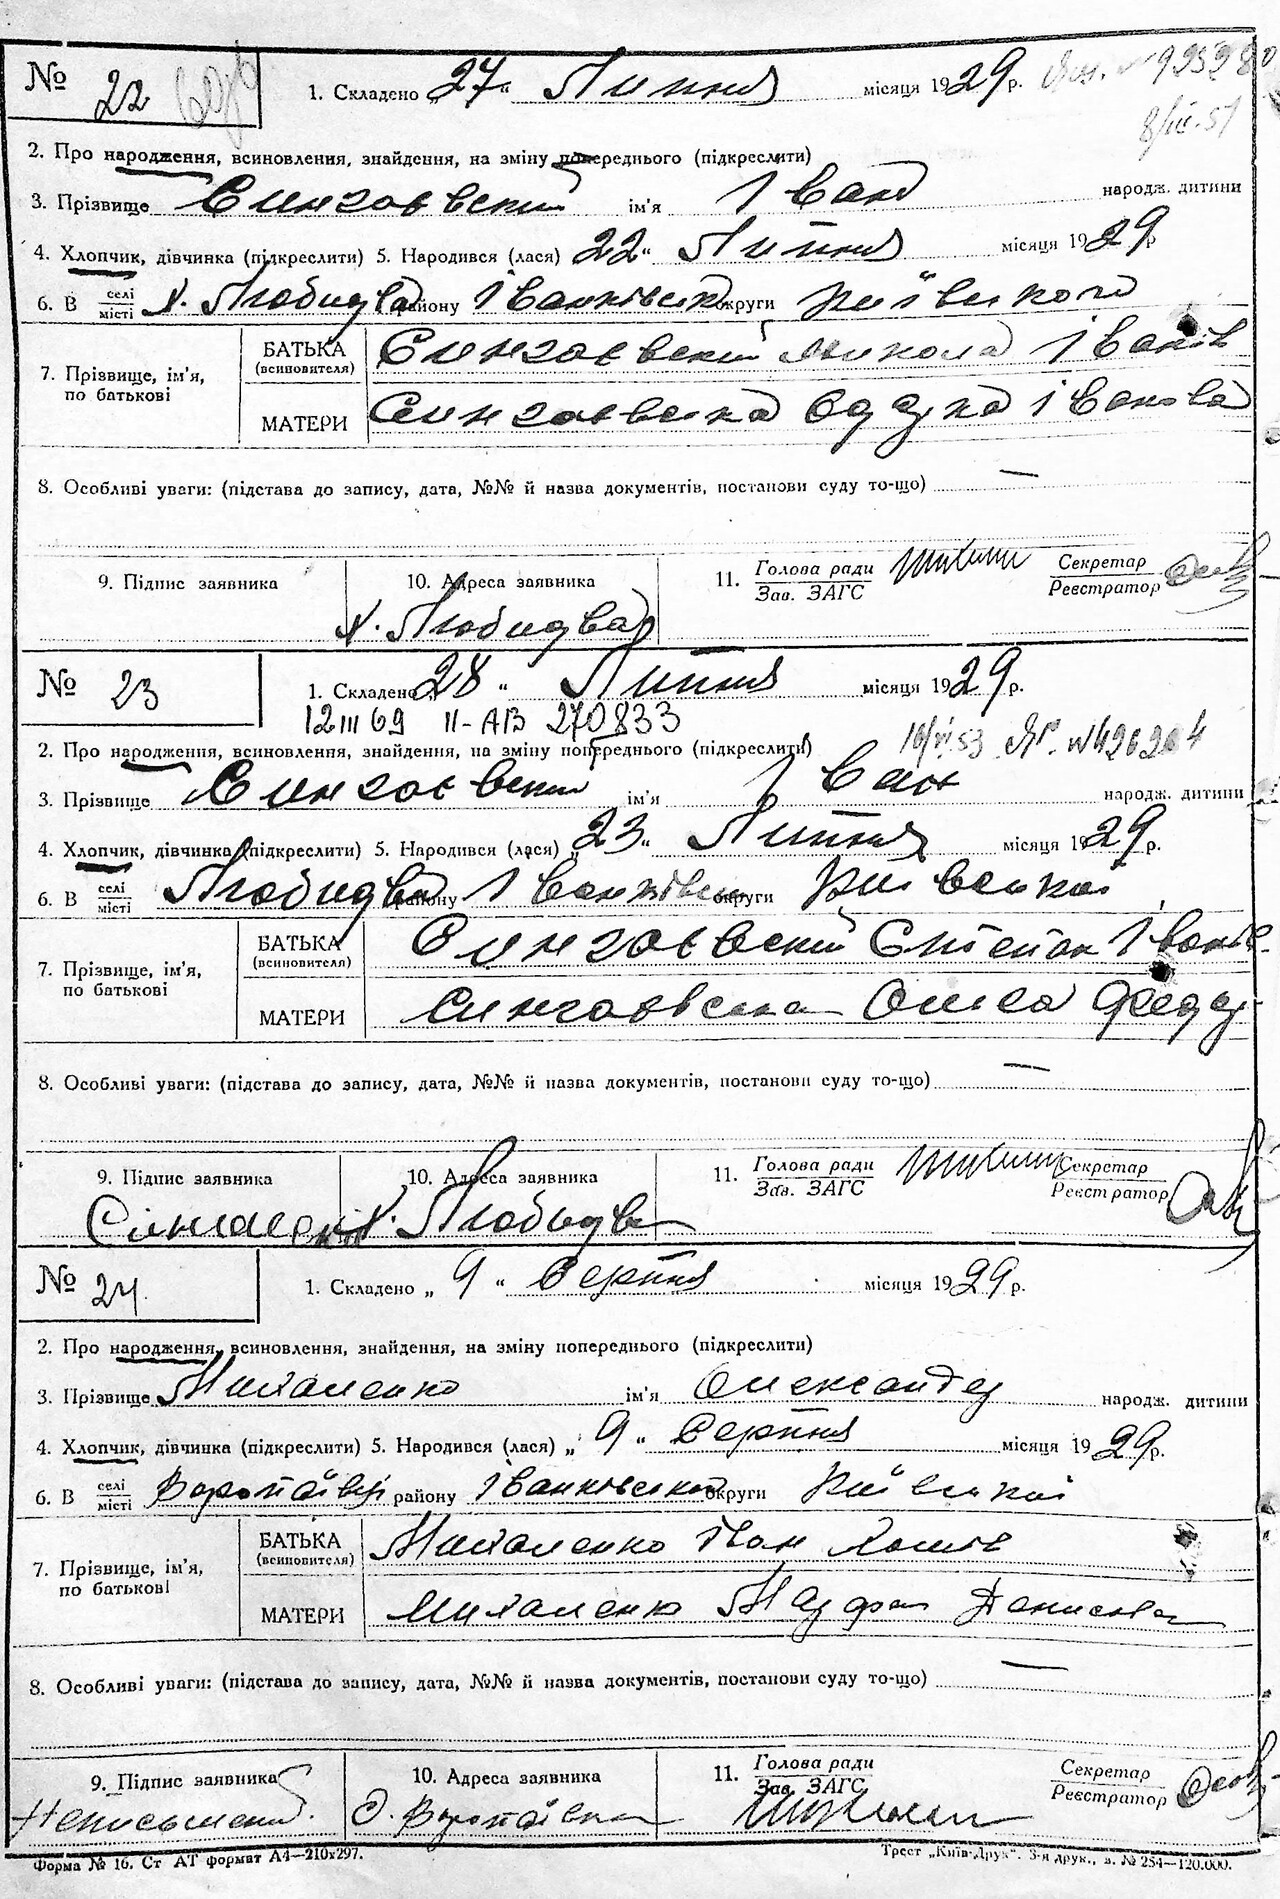 № 22 1. Складено „27“ Липня місяця 1929 р.
2. Про народження, всиновлення, знайдення, на зміну попереднього (підкреслити)
3. Прізвище Сингаєвский ім'я Іван народж. дитини
4. Хлопчик, дівчинка (підкреслити) 5. Народився (лася) „22“ Липня місяця 1929 р.
6. В селі/місті х. Любидва району Іванківськ округи Київського
7. Прізвище, ім'я, по батькові
БАТЬКА (всиновителя) Сингаєвский Микола Іванів
МАТЕРИ Сингаєвська Іванова
8. Особливі уваги: (підстава до запису, дата, №№ й назва документів, постанови суду то-що) —
9. Підпис заявника 10. Адреса заявника 11. Голова ради/Зав. ЗАГС Секретар/Реєстратор
х. Любидва
№ 23 1. Складено „28“ Липня місяця 1929 р.
12 III 69 II-АВ 270833
2. Про народження, всиновлення, знайдення, на зміну попереднього (підкреслити)
3. Прізвище Сингаєвский ім'я Іван народж. дитини
4. Хлопчик, дівчинка (підкреслити) 5. Народився (лася) „23“ Липня місяця 1929 р.
6. В селі/місті Любидва району Іванківськ округи Київської
7. Прізвище, ім'я, по батькові
БАТЬКА (всиновителя) Сингаєвский Степан Іванів
МАТЕРИ Сингаєвська
8. Особливі уваги: (підстава до запису, дата, №№ й назва документів, постанови суду то-що) —
9. Підпис заявника 10. Адреса заявника 11. Голова ради/Зав. ЗАГС Секретар/Реєстратор
х. Любидва
№ 24 1. Складено „9“ Серпня місяця 1929 р.
2. Про народження, всиновлення, знайдення, на зміну попереднього (підкреслити)
3. Прізвище Михаленко ім'я Олександер народж. дитини
4. Хлопчик, дівчинка (підкреслити) 5. Народився (лася) „9“ Серпня місяця 1929 р.
6. В селі/місті району Іванківськ округи Київської
7. Прізвище, ім'я, по батькові
БАТЬКА (всиновителя) Михаленко Іван
МАТЕРИ Михаленко Денисова
8. Особливі уваги: (підстава до запису, дата, №№ й назва документів, постанови суду то-що) —
9. Підпис заявника 10. Адреса заявника 11. Голова ради/Зав. ЗАГС Секретар/Реєстратор
Неписьмений. с.
Форма № 16. Ст АТ формат А4—210x297. Трест „Київ-Друк“. 3-я друк., з. № 254—120.000.